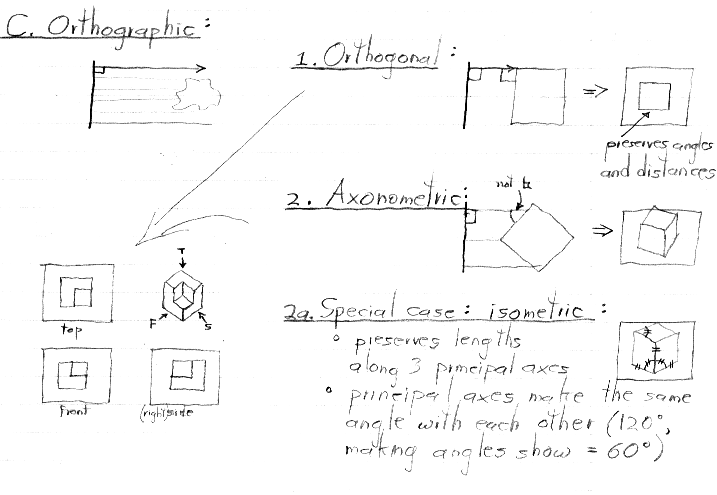 C. Orthographic:
1. Orthogonal:
preserves angles
and distances
2. Axonometric:
not
T
F
S
top
Front
(right)side
2a. Special case: isometric:
° preserves lengths
along 3 principal axes
° principal axes make the same
angle with each other (120°,
making angles show = 60°)